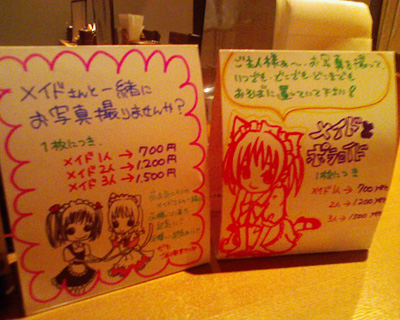 メイドさんと一緒に
お写真撮りませんか?
1枚につき、
メイド1人→700円
メイド2人→1,200円
メイド3人→1,500円
ご主人様あ〜、お写真を撮って
いつでも どこでも どこまでも
おそばに置いて下さい!
メイドと
ポラロイド
1枚につき
メイド1人→700円
2人→1200円
3人→1500円